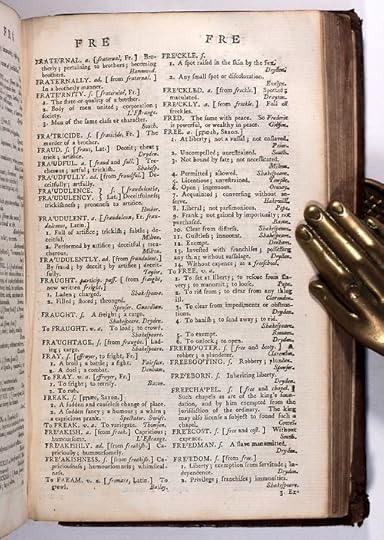 FRE
FRATERNAL. a. [fraternel, Fr.] Bro-
therly; pertaining to brothers; becoming
brothers. Hammond.
FRATERNALLY. ad. [from fraternal.]
In a brotherly manner.
FRATERNITY. s. [fraternité, Fr.]
1. The state or quality of a brother.
2. Body of men united; corporation;
society. L'Estrange.
3. Men of the same class or character.
South.
FRATRICIDE. s. [fraticide, Fr.] The
murder of a brother.
FRAUD. s. [fraus, Lat.] Deceit; cheat;
trick; artifice. Dryden.
FRAUDFUL. a. [fraud and full.] Trea-
cherous; artful; trickish. Shakespeare.
FRAUDFULLY. ad. [from fraudful.] De-
ceitfully; artfully.
FRAUDULENCE. s. [fraudulentia,
FRAUDULENCY. Lat.] Deceitfulness;
trickishness; proneness to artifice.
Hooker.
FRAUDULENT. a. [frauduleux, Fr. frau-
dulentus, Latin.]
1. Full of artifice; trickish; subtle; de-
ceitful. Milton.
2. Performed by artifice; deceitful; trea-
cherous. Milton.
FRAUDULENTLY. ad. [from fraudulent.]
By fraud; by deceit; by artifice; deceit-
fully. Taylor.
FRAUGHT. particip. pass. [from fraight,
now written freight.]
1. Laden; charged. Shakespeare.
2. Filled; stored; thronged.
Spenser. Guardian.
FRAUGHT. s. A freight; a cargo.
Shakespeare. Dryden.
To FRAUGHT. v. a. To load; to crowd.
Shakespeare.
FRAUGHTAGE. s. [from fraught.] Lad-
ing; cargo. Shakespeare.
FRAY. s. [effrayer, to fright, Fr.]
1. A broil; a battle; a fight. Fairfax.
2. A duel; a combat. Denham.
To FRAY. v. a. [effrayer, Fr.]
1. To fright; to terrify. Bacon.
2. To rub.
FREAK. s. [fræc, Saxon.]
1. A sudden and causeless change of place.
2. A sudden fancy; a humour; a whim;
a capricious prank. Spectator. Swift.
To FREAK. v. a. To variegate. Thomson.
FREAKISH. a. [from freak.] Capricious;
humoursome. L'Estrange.
FREAKISHLY. ad. [from freakish.] Ca-
priciously; humoursomely.
FREAKISHNESS. s. [from freakish.] Ca-
priciousness; humoursomeness; whimsical-
ness.
To FREAM. v. n. [fremere, Latin.] To
growl. Bailey.
FRE
FRECKLE. s.
1. A spot raised in the skin by the sun.
Dryden.
2. Any small spot or discoloration.
Evelyn.
FRECKLED. a. [from freckle.] Spotted;
maculated. Drayton.
FRECKLY. a. [from freckle.] Full of
freckles.
FRED. The same with peace. So Frederic
is powerful, or wealthy in peace. Gibson.
FREE. a. [freah, Saxon.]
1. At liberty; not a vassal; not enslaved.
Prior.
2. Uncompelled; unrestrained. South.
3. Not bound by fate; not necessitated.
Milton.
4. Permitted; allowed. Shakespeare.
5. Licentious; unrestrained. Temple.
6. Open; ingenuous. Otway.
7. Acquainted; conversing without re-
serve. Hakewill.
8. Liberal; not parsimonious. Pope.
9. Frank; not gained by importunity; not
purchased. Bacon.
10. Clear from distress. Shakespeare.
11. Guiltless; innocent. Shakespeare.
12. Exempt. Denham.
13. Invested with franchises; possessing
any thing without vassalage. Dryden.
14. Without expence; as a freeschool.
To FREE. v. a.
1. To set at liberty; to rescue from sla-
very; to manumit; to loose. Pope.
2. To rid from; to clear from any thing
ill. Clarendon.
3. To clear from impediments or obstruc-
tions. Dryden.
4. To banish; to send away; to rid.
Shakespeare.
5. To exempt. Romans.
6. To unlock; to open. Dryden.
FREEBOOTER. s. [free and booty.] A
robber; a plunderer. Clarendon.
FREEBOOTING. s. Robbery; plunder.
Spenser.
FREEBORN. Inheriting liberty.
Dryden.
FREECHAPEL. s. [free and chapel.]
Such chapels as are of the king's foun-
dation, and by him exempted from the
jurisdiction of the ordinary. The king
may also license a subject to found such a
chapel. Cowel.
FREECOST. s. [free and cost.] Without
expence. South.
FREEDMAN. s. A slave manumitted.
Dryden.
FREEDOM. s. [from free.]
1. Liberty; exemption from servitude; in-
dependence. Dryden.
2. Privilege; franchises; immunities.
Shakespeare.
3. Ex-